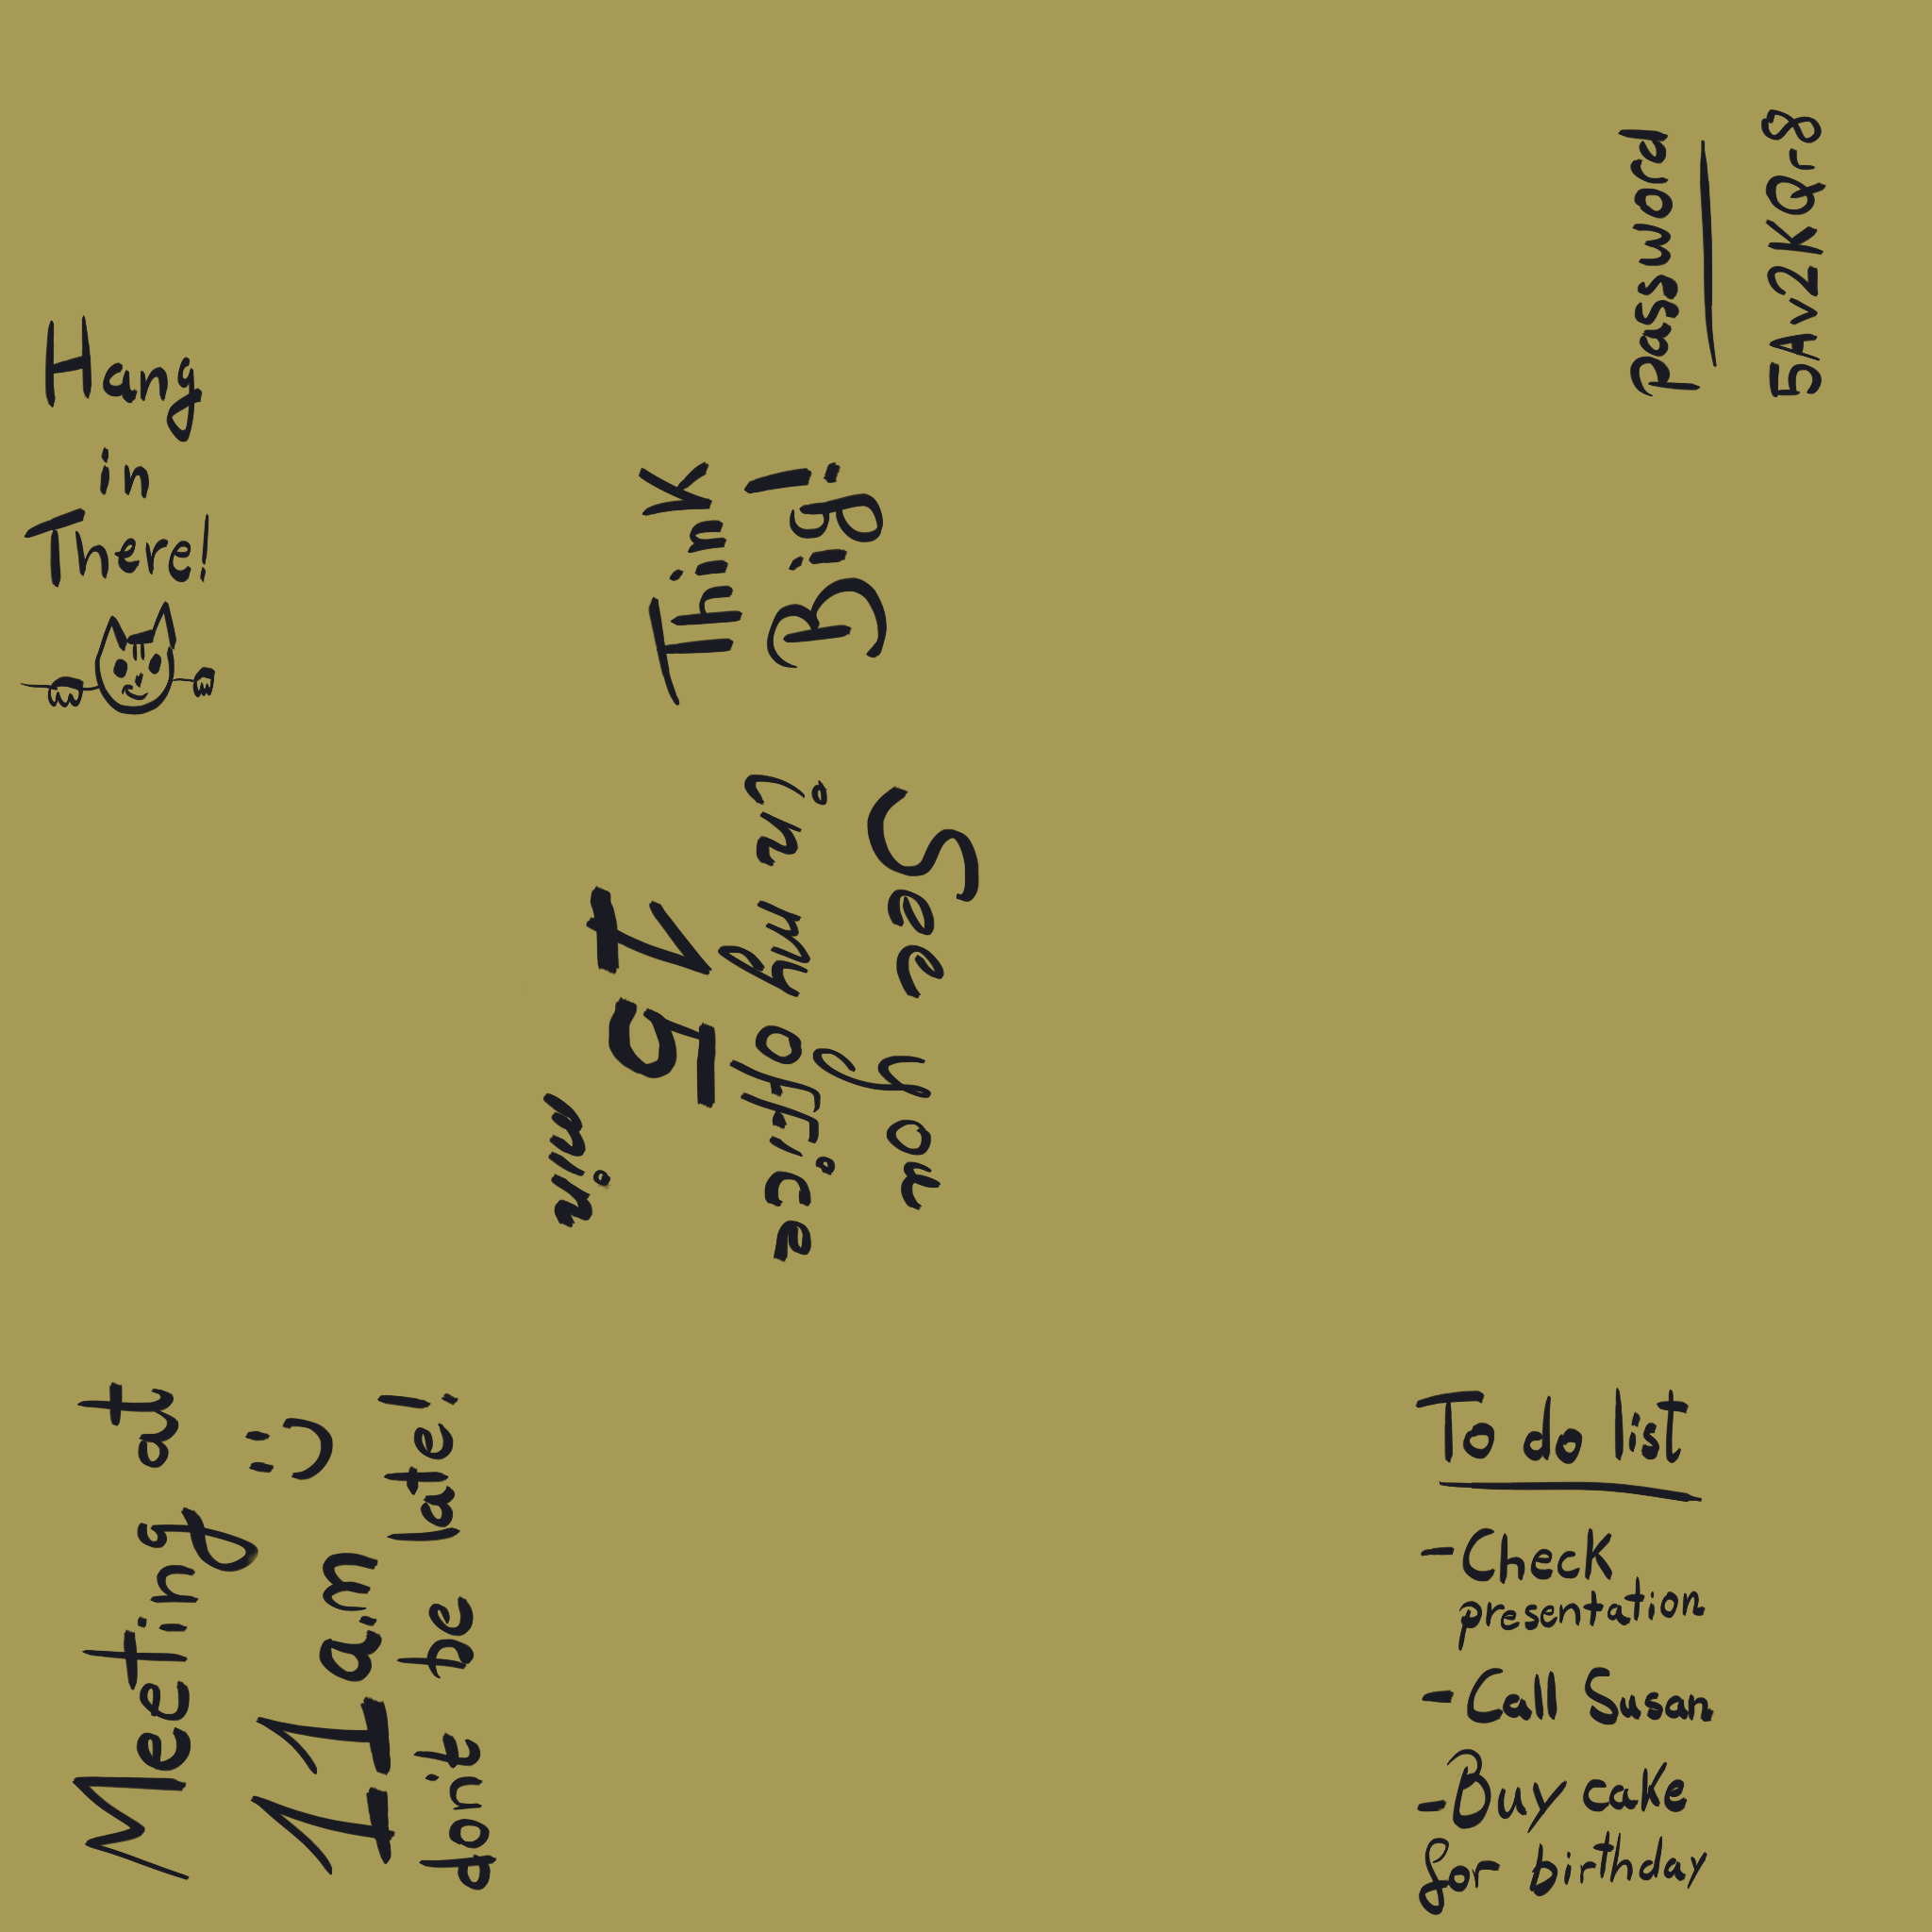 Hang
in
There!
Think
Big!
password
5Av2KQr8
See you
in my office
15
min
Meeting at
11 am :)
don't be late!
To do list
- Check
presentation
- Call Susan
- Buy cake
for birthday